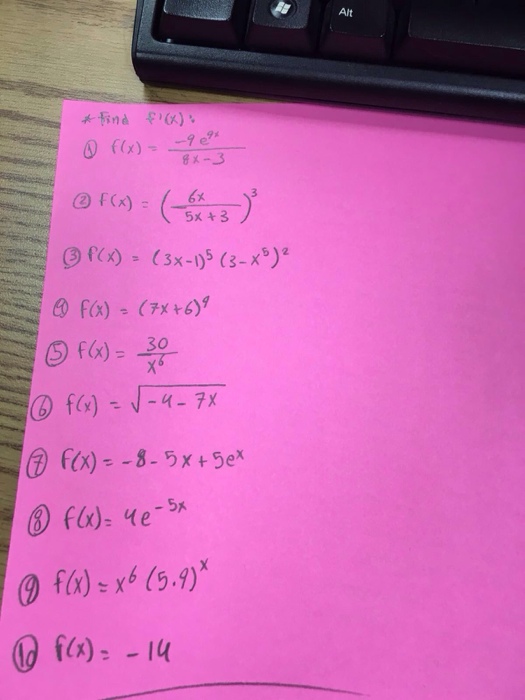 Alt
* find f'(x):
① f(x) = -9e^9x / 8x-3
② f(x) = (6x / 5x+3)^3
③ f(x) = (3x-1)^5 (3-x^5)^2
④ f(x) = (7x+6)^9
⑤ f(x) = 30 / x^6
⑥ f(x) = √-4-7x
⑦ f(x) = -8-5x+5e^x
⑧ f(x) = 4e^-5x
⑨ f(x) = x^6 (5.9)^x
⑩ f(x) = -14